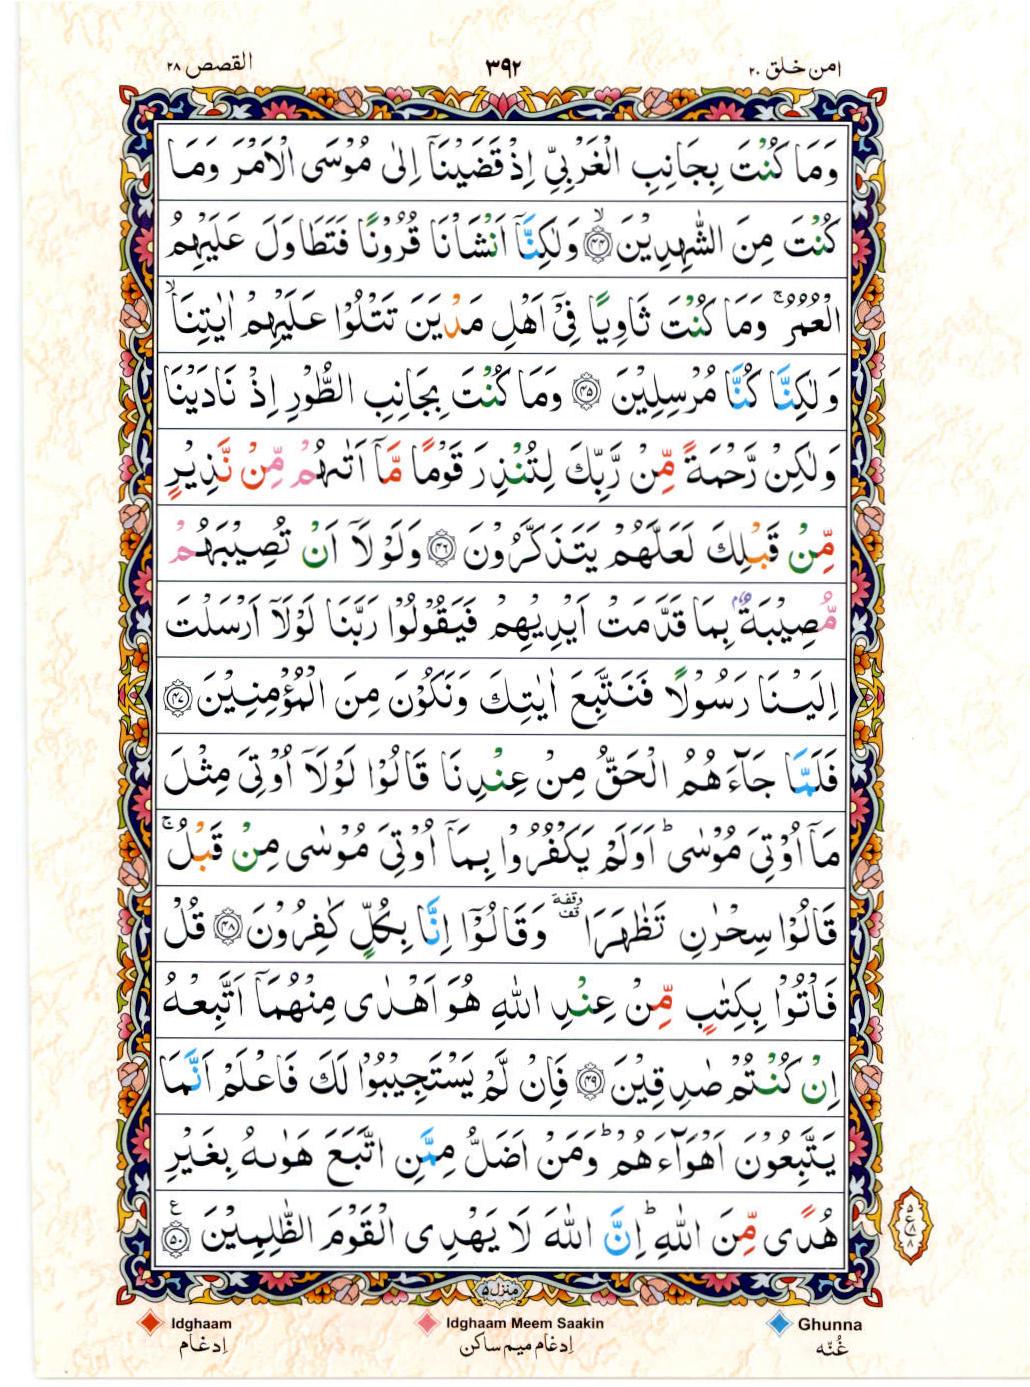 القصص ٢٨
٣٩٢
امن خلق ٢٠
وَمَا كُنْتَ بِجَانِبِ الْغَرْبِيِّ اِذْ قَضَيْنَاۤ اِلٰى مُوْسَى الْاَمْرَ وَمَا
كُنْتَ مِنَ الشّٰهِدِيْنَۙ ﴿٤٤﴾ وَلٰكِنَّاۤ اَنْشَاْنَا قُرُوْنًا فَتَطَاوَلَ عَلَيْهِمُ
الْعُمُرُۚ وَمَا كُنْتَ ثَاوِيًا فِىْۤ اَهْلِ مَدْيَنَ تَتْلُوْا عَلَيْهِمْ اٰيٰتِنَاۙ
وَلٰكِنَّا كُنَّا مُرْسِلِيْنَ ﴿٤٥﴾ وَمَا كُنْتَ بِجَانِبِ الطُّوْرِ اِذْ نَادَيْنَا
وَلٰكِنْ رَّحْمَةً مِّنْ رَّبِّكَ لِتُنْذِرَ قَوْمًا مَّاۤ اَتٰٮهُمْ مِّنْ نَّذِيْرٍ
مِّنْ قَبْلِكَ لَعَلَّهُمْ يَتَذَكَّرُوْنَ ﴿٤٦﴾ وَلَوْلَاۤ اَنْ تُصِيْبَهُمْ
مُّصِيْبَةٌۢ بِمَا قَدَّمَتْ اَيْدِيْهِمْ فَيَقُوْلُوْا رَبَّنَا لَوْلَاۤ اَرْسَلْتَ
اِلَيْنَا رَسُوْلًا فَنَتَّبِعَ اٰيٰتِكَ وَنَكُوْنَ مِنَ الْمُؤْمِنِيْنَ ﴿٤٧﴾
فَلَمَّا جَآءَهُمُ الْحَقُّ مِنْ عِنْدِنَا قَالُوْا لَوْلَاۤ اُوْتِىَ مِثْلَ
مَاۤ اُوْتِىَ مُوْسٰىؕ اَوَلَمْ يَكْفُرُوْا بِمَاۤ اُوْتِىَ مُوْسٰى مِنْ قَبْلُۚ
قَالُوْا سِحْرٰنِ تَظٰهَرَا وقفة قف وَقَالُوْۤا اِنَّا بِكُلٍّ كٰفِرُوْنَ ﴿٤٨﴾ قُلْ
فَاْتُوْا بِكِتٰبٍ مِّنْ عِنْدِ اللّٰهِ هُوَ اَهْدٰى مِنْهُمَاۤ اَتَّبِعْهُ
اِنْ كُنْتُمْ صٰدِقِيْنَ ﴿٤٩﴾ فَاِنْ لَّمْ يَسْتَجِيْبُوْا لَكَ فَاعْلَمْ اَنَّمَا
يَتَّبِعُوْنَ اَهْوَآءَهُمْؕ وَمَنْ اَضَلُّ مِمَّنِ اتَّبَعَ هَوٰٮهُ بِغَيْرِ
هُدًى مِّنَ اللّٰهِؕ اِنَّ اللّٰهَ لَا يَهْدِى الْقَوْمَ الظّٰلِمِيْنَ ﴿٥٠﴾ ع
٥ ع ٨ ٨
منزل ٥
Idghaam
اِدغام
Idghaam Meem Saakin
اِدغام میم ساکن
Ghunna
غُنّہ